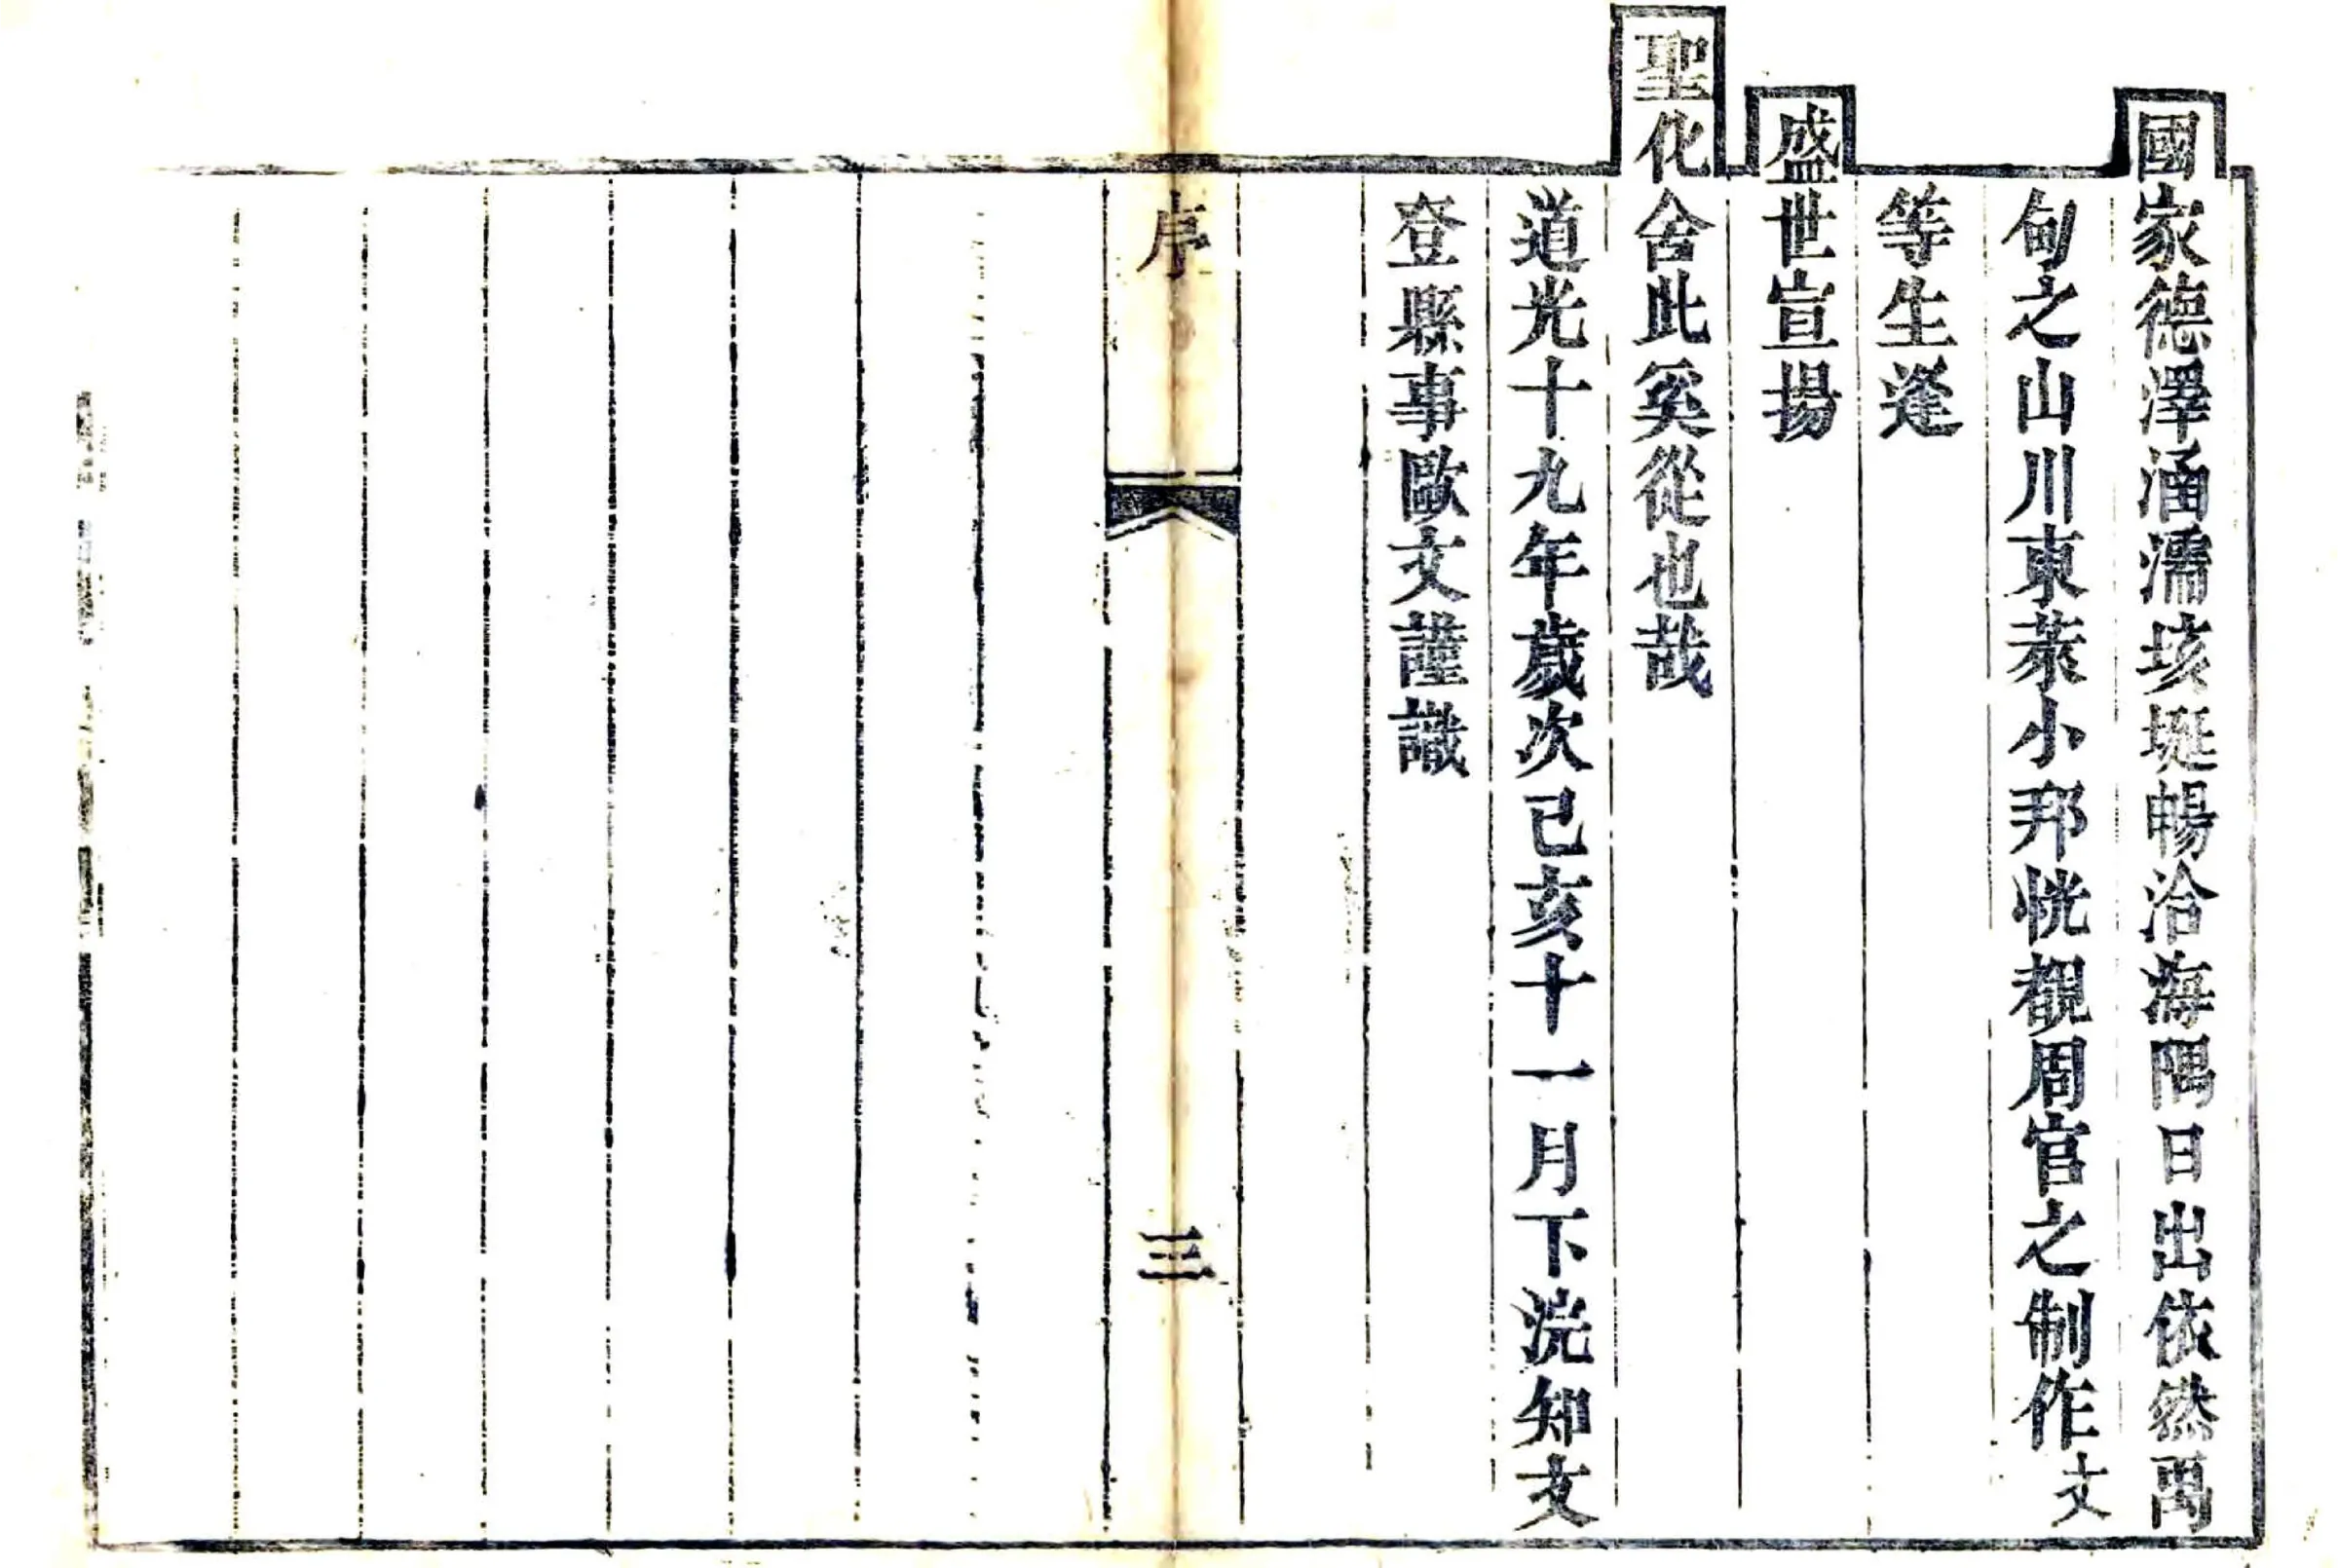 國家德澤涵濡垓埏暢洽海隅日出依然禹
甸之山川東萊小邦恍覩周官之制作文
等生逢
盛世宣揚
聖化舍此奚從也哉
道光十九年歲次己亥十一月下浣知文
登縣事歐文謹識
序
三